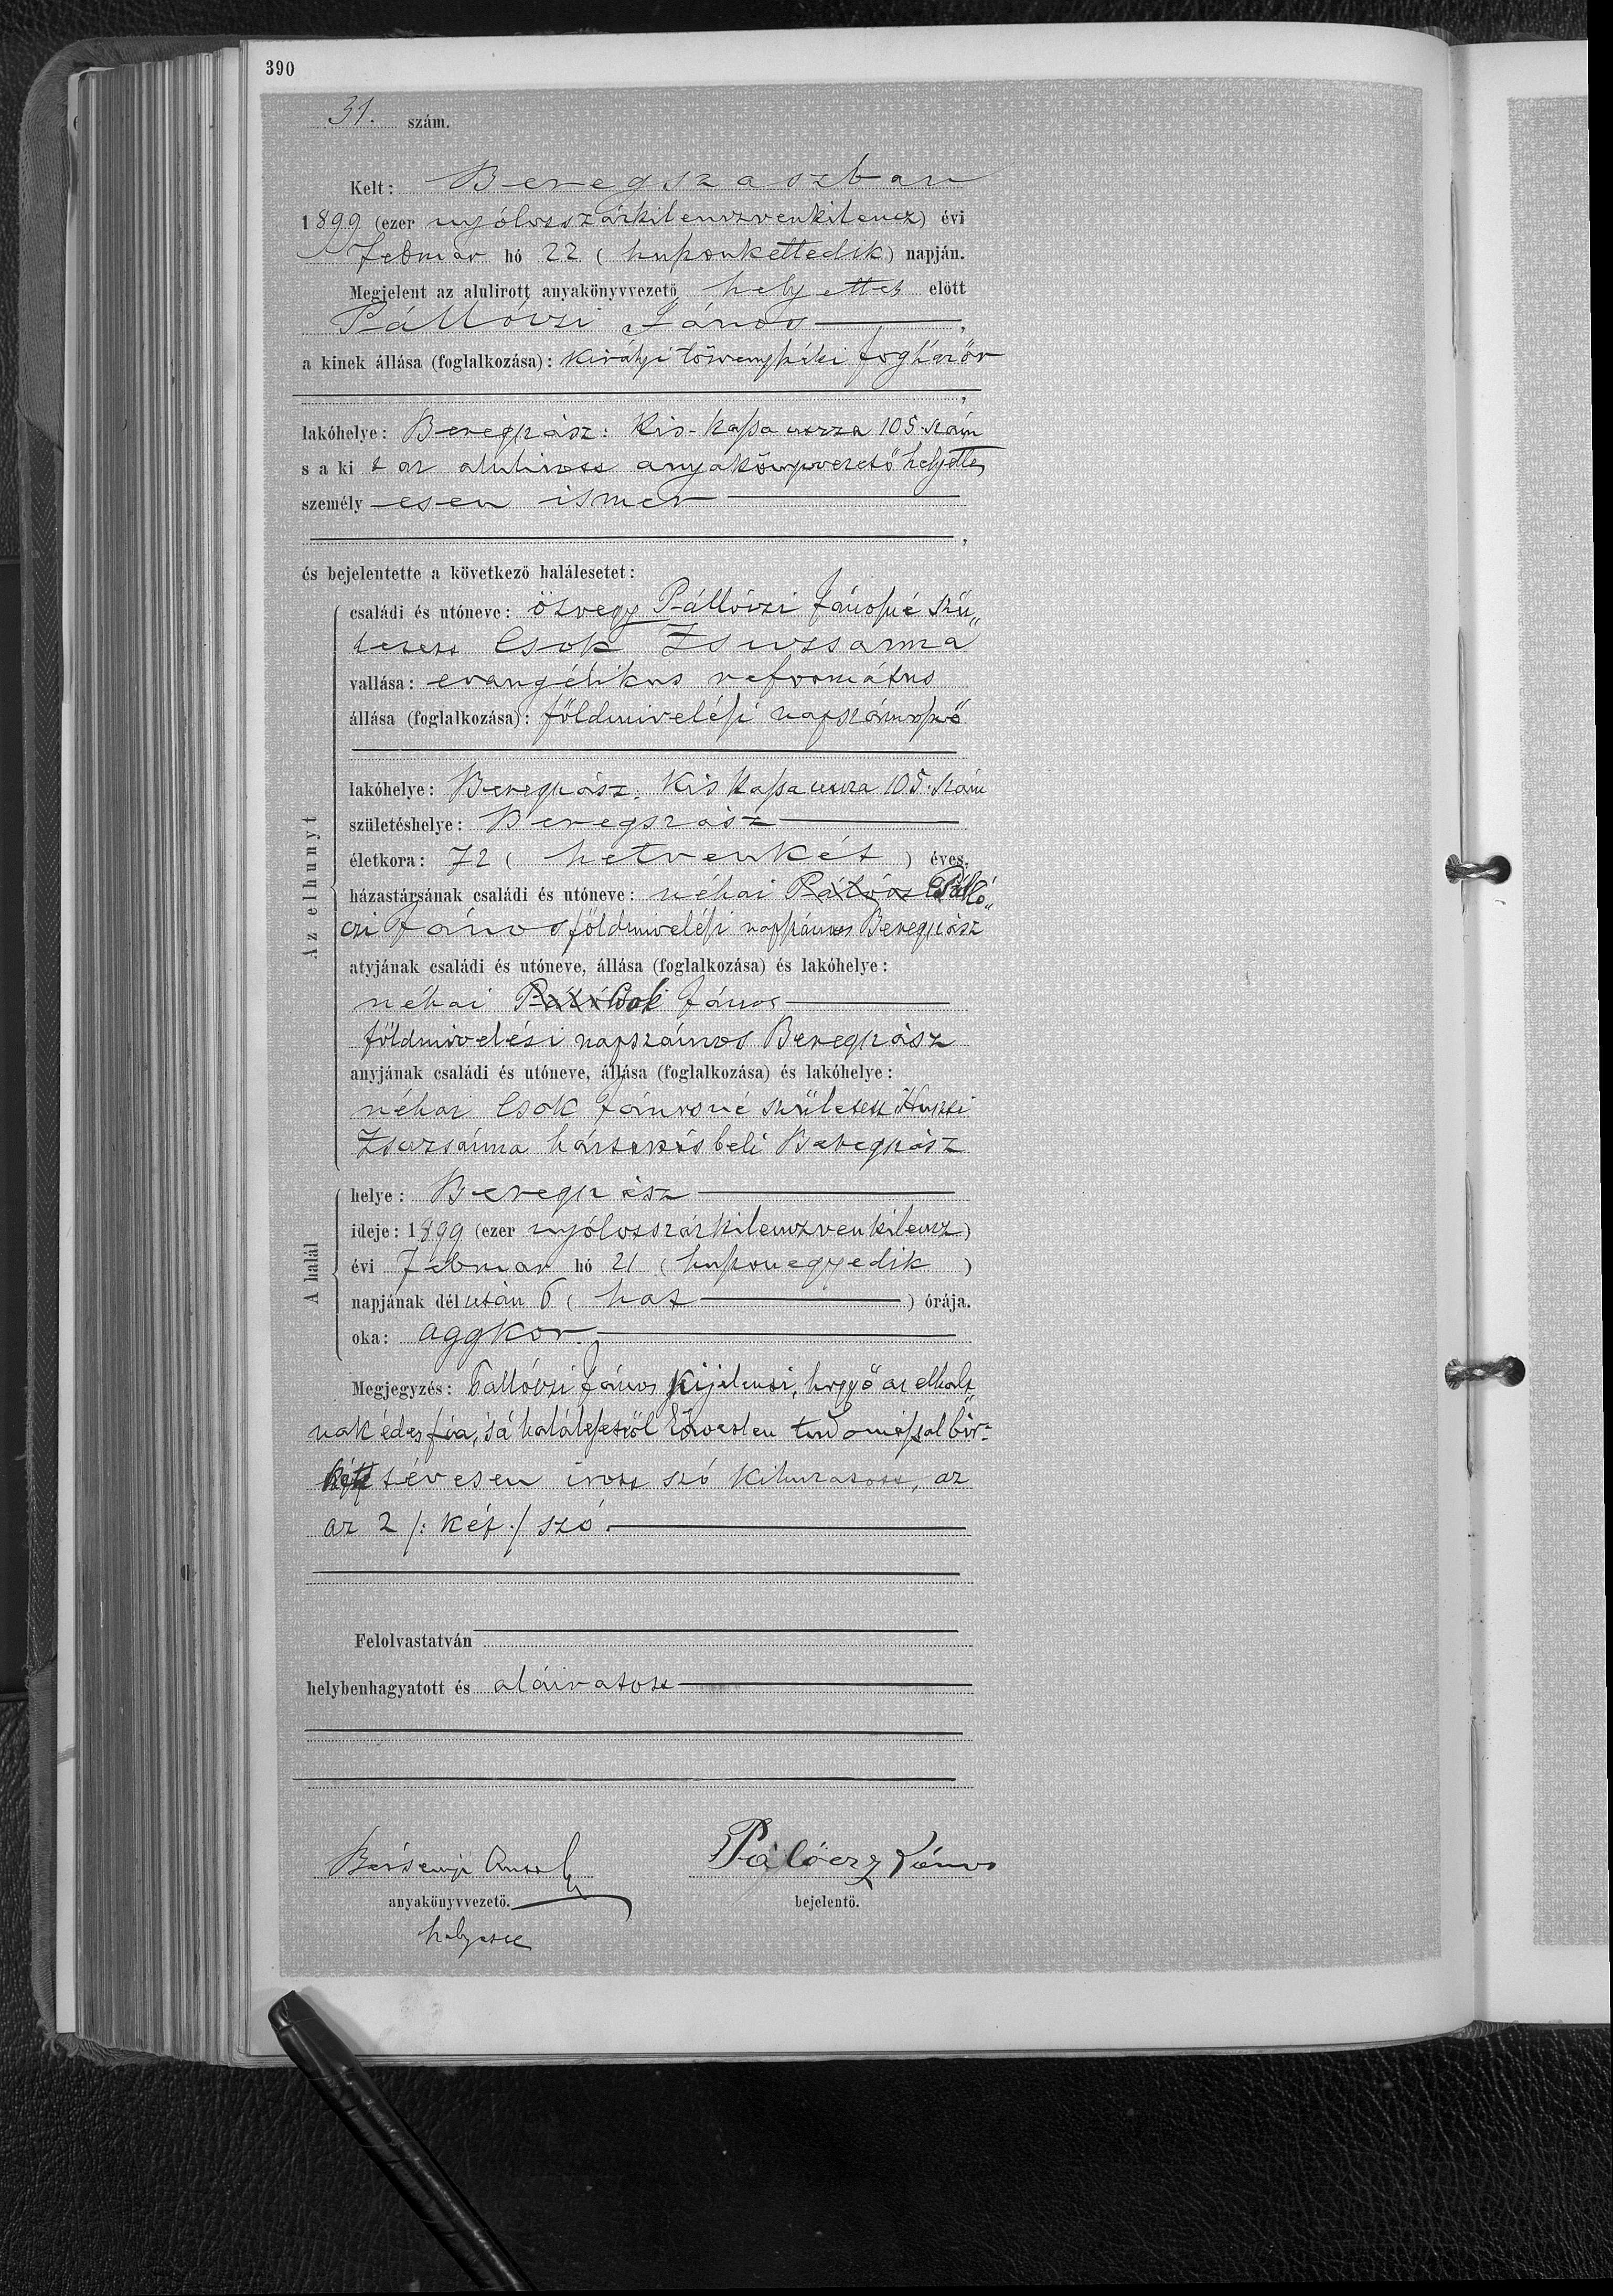 390
31. szám.
Kelt: Beregszaszban
1899 (ezer nyólczszázkilenczvenkilencz) évi
Február hó 22 (huszonkettedik) napján.
Megjelent az alulirott anyakönyvvezető helyettes előtt
Pállóczi János,
a kinek állása (foglalkozása): királyi törvényszéki fogházőr
lakóhelye: Beregszász: Kis-kasza utcza 105. szám
s a ki t az alulirott anyakönyvvezető helyettes
személy esen ismer,
és bejelentette a következő halálesetet:
Az elhunyt
családi és utóneve: özvegy Pállóczi Jánosné szü„
letett Csok Zsuzsanna
vallása: evangélikus református
állása (foglalkozása): földmivelési napszámosnő
lakóhelye: Beregszász: Kis kaszautcza 105. szám
születéshelye: Beregszász
életkora: 72 (hetvenkét) éves.
házastársának családi és utóneve: néhai Pálló„
czi János földmivelési napszámos Beregszász
atyjának családi és utóneve, állása (foglalkozása) és lakóhelye:
néhai Csok János
földmivelési napszámos Beregszász
anyjának családi és utóneve, állása (foglalkozása) és lakóhelye:
néhai Csok Jánosné született Huszti
Zsuzsánna háztartásbeli Beregszász
A halál
helye: Beregszász
ideje: 1899 (ezer nyólczszázkilenczvenkilencz)
évi Február hó 21 (huszonegyedik)
napjának délután 6 (hat) órája.
oka: aggkor
Megjegyzés: Pallóczi János kijelenti, hogy ő az elhalt„
nak édes fia, s á halálesetről közvetlen tudomással bir.
tévesen irott szó kihuzatott, az
az 2 /: két :/ szó.
Felolvastatván
helybenhagyatott és aláiratott
Pálóczi János
anyakönyvvezető. bejelentő.
helyettes